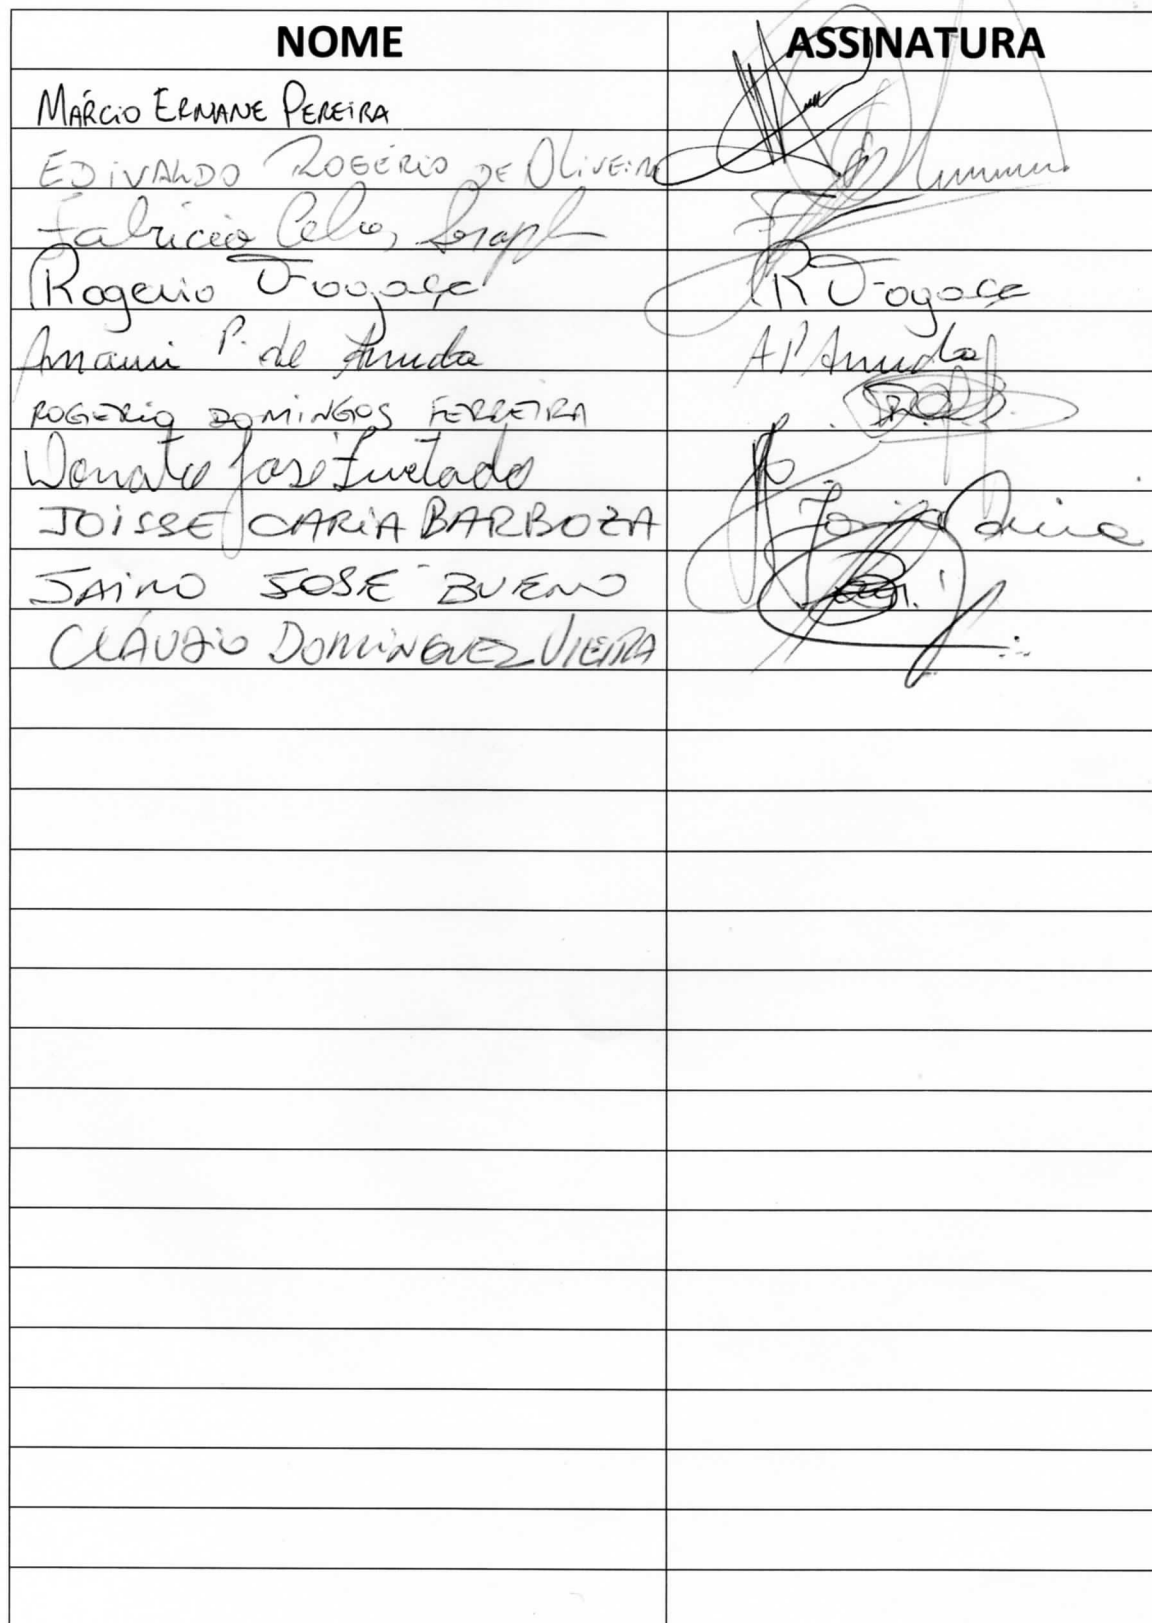 NOME ASSINATURA
MÁRCIO ERNANE PEREIRA
EDIVALDO ROGÉRIO DE OLIVEIRA
Fabricio Celio
Rogerio Fogaça R Fogaça
Amauri P. de Arruda AP Arruda
ROGERIO DOMINGOS FERREIRA
Donato José Furtado
JOISSE CARIA BARBOZA
JAIRO JOSÉ BUENO
CLÁUDIO DOMINGUEZ VIEIRA